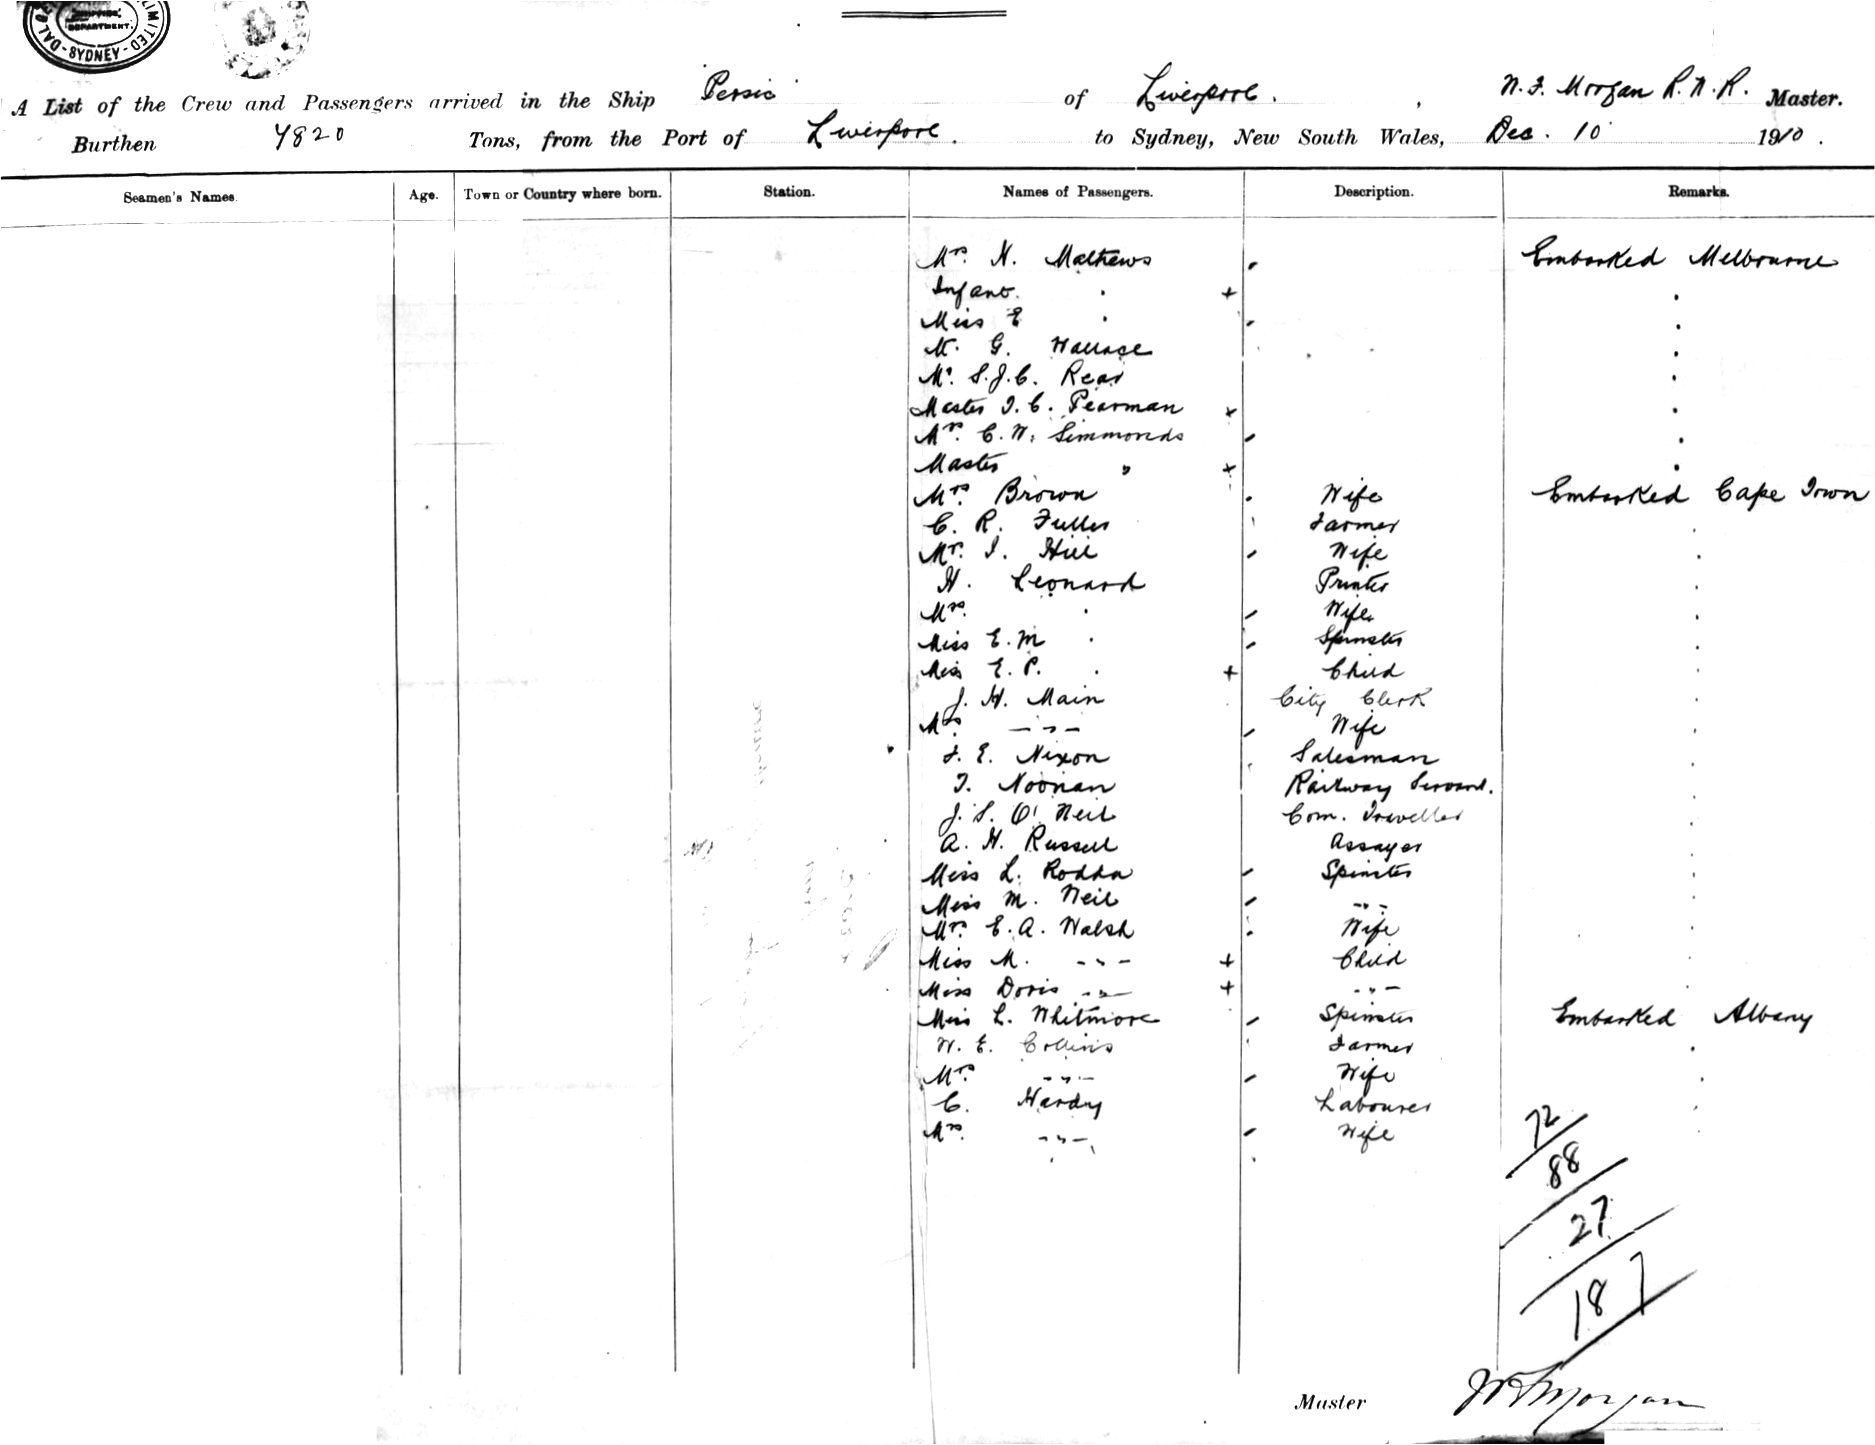 LIMITED
DEPARTMENT.
SYDNEY
A List of the Crew and Passengers arrived in the Ship Persic of Liverpool. , W. F. Morgan R.N.R. Master.
Burthen 7820 Tons, from the Port of Liverpool. to Sydney, New South Wales, Dec. 10 1910.
Seamen's Names. Age. Town or Country where born. Station. Names of Passengers. Description. Remarks.
Mrs. H. Mathews Embarked Melbourne
Infant. " + "
Miss E " "
Mr. G. Wallace "
Mr. S.J.C. Read "
Master I. C. Pearman + "
Mrs. C. W. Simmonds "
Master " + "
Mrs Brown Wife Embarked Cape Town
C. R. Fuller Farmer "
Mrs. I. Hill Wife "
H. Leonard Printer "
Mrs. " Wife "
Miss E. M " Spinster "
Miss E. P. " + Child "
J. H. Main City Clerk "
Mrs. -"- Wife "
F. E. Nixon Salesman "
T. Noonan Railway Servant. "
J. S. O'Neil Com. Traveller "
A. H. Russell Assayer "
Miss L. Rodda Spinster "
Miss M. Neil -"- "
Mrs. E. A. Walsh Wife "
Miss M. -"- + Child "
Miss Doris -"- + -"- "
Miss L. Whitmore Spinster Embarked Albany
W. E. Collins Farmer "
Mrs. -"- Wife "
C. Hardy Labourer "
Mrs. -"- Wife "
72
88
27
187
Master W F Morgan